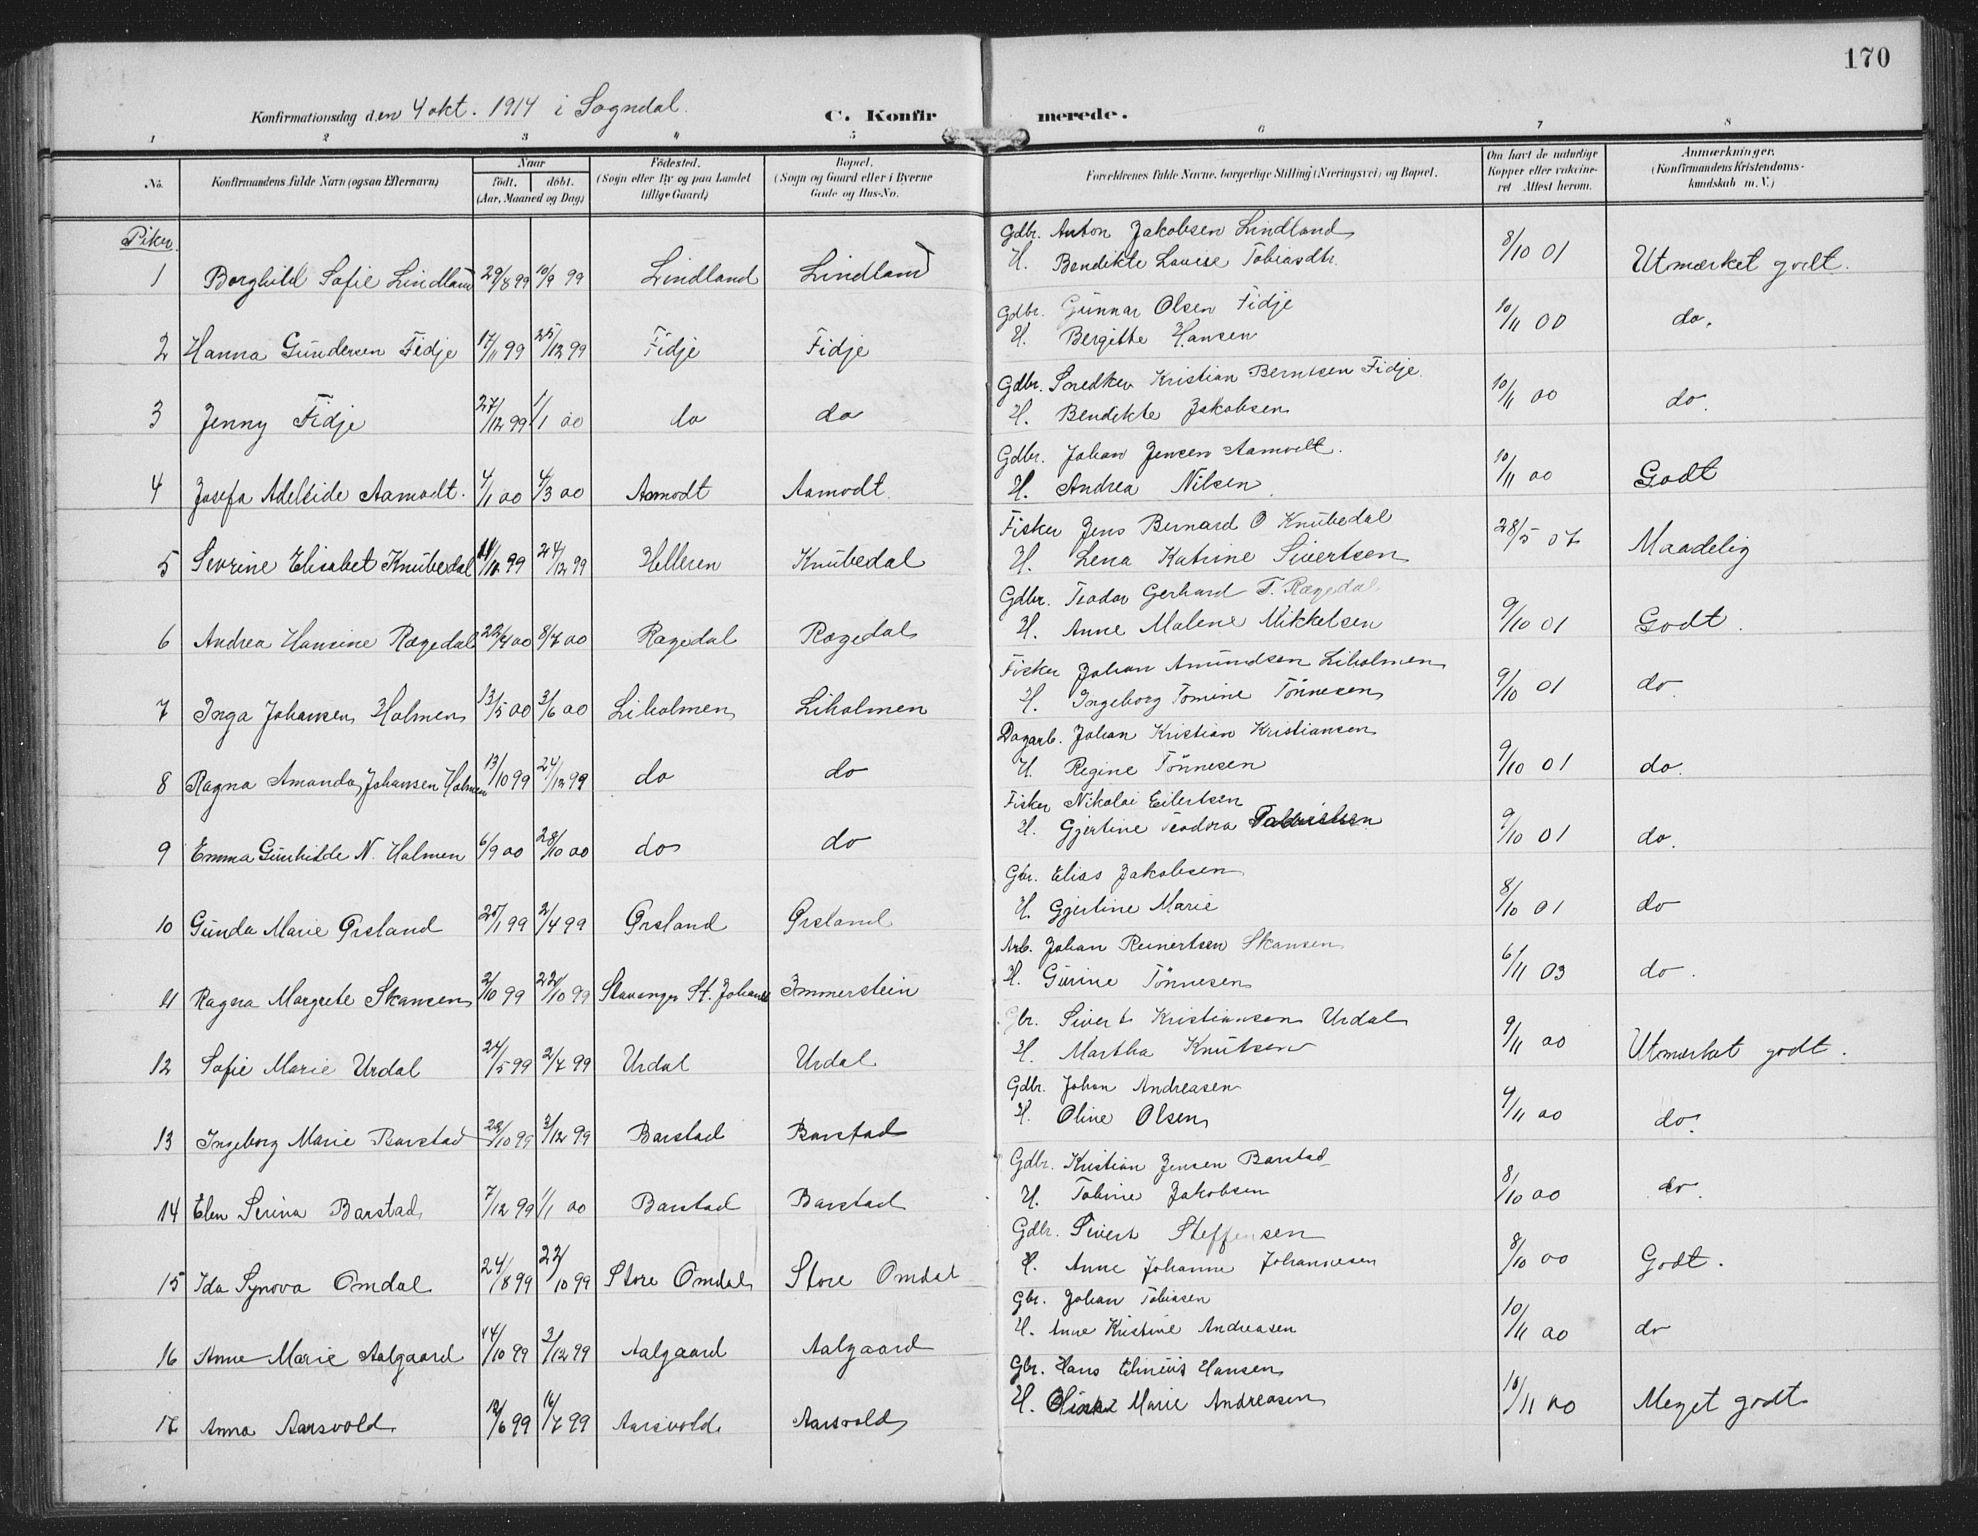 170
Konfirmationsdag den 4 okt. 1914 i Sogndal. C. Konfirmerede.
1 2 3 4 5 6 7 8
No. Konfirmandens fulde Navn (ogsaa Efternavn) Naar født. døbt. (Aar, Maaned og Dag) Fødested. (Sogn eller By og paa Landet tillige Gaard) Bopæl. (Sogn og Gaard eller i Byerne Gade og Hus-No. Forældrenes fulde Navne, borgerlige Stilling (Næringsvei) og Bopæl. Om havt de naturlige Kopper eller vakcineret. Attest herom. Anmærkninger. (Konfirmandens Kristendomskundskab m. V.)
Piker.
Gdbr. Anton Jakobsen Lindland
1 Borghild Sofie Lindland 29/8 99 10/9 99 Lindland Lindland H. Bendikte Lovise Tobiasdtr. 8/10 01 Utmærket godt.
Gdbr. Gunnar Olsen Fidje
2 Hanna Gundersen Fidje 17/11 99 25/12 99 Fidje Fidje H. Bergitte Hansen 10/11 00 do.
Gdbr. Kristian Berntsen Fidje
3 Jenny Fidje 27/12 99 1/1 00 do do H. Bendikte Jakobsen 10/11 00 do.
Gdbr. Johan Jensen Aamodt.
4 Josefa Adeleide Aamodt. 4/1 00 4/3 00 Aamodt Aamodt. H. Andrea Nilsen 10/11 00 Godt
Fisker Jens Bernard O Knubedal
5 Sevrine Elisabet Knubedal 99 24/12 99 Helleren Knubedal H. Lena Katrine Sivertsen 28/5 07 Maadelig
Gdbr. Teodor Gerhard T. Rægedal
6 Andrea Hansine Rægedal 00 8/7 00 Rægedal Rægedal H. Anne Malene Mikkelsen 9/10 01 Godt.
Fisker Johan Amundsen Liholmen
7 Inga Johansen Holmen 13/5 00 3/6 00 Liholmen Liholmen H. Ingeborg Tomine Tønnesen 9/10 01 do
Dagarb. Johan Kristian Kristiansen
8 Ragna Amanda Johansen Holmen 13/10 99 27/12 99 do do H. Regine Tønnesen 9/10 01 do.
Fisker Nikolai Eilertsen
9 Emma Gunhilde N. Holmen 6/9 00 28/10 00 do do H. Gjertine Teodora 9/10 01 do.
Gbr. Elias Jakobsen
10 Gunda Marie Ørsland 99 2/4 99 Ørsland Ørsland H. Gjertine Marie 8/10 01 do
Arb. Johan Reinertsen Skansen
11 Ragna Margrete Skansen 2/10 99 22/10 99 Stavanger St. Johannes Immerstein H. Gurine Tønnesen 6/11 03 do.
Gbr. Sivert Kristiansen Urdal
12 Sofie Marie Urdal 24/5 99 2/7 99 Urdal Urdal H. Martha Knutsen 9/11 00 Utmerket godt.
Gdbr. Johan Andreasen
13 Ingeborg Marie Barstad 22/10 99 3/12 99 Barstad Barstad H. Oline Olsen 9/11 00 do.
Gdbr. Kristian Jensen Barstad
14 Elen Serina Barstad 7/12 99 1/1 00 Barstad Barstad H. Tobine Jakobsen 8/10 00 do.
Gdbr. Sivert Steffensen
15 Ida Synova Omdal 24/8 99 22/10 99 Store Omdal Store Omdal H. Anne Johanne Johannesen 8/10 00 Godt.
Gbr. Johan Tobiasen
16 Anne Marie Aalgaard 14/10 99 3/12 99 Aalgaard Aalgaard H. Anne Kristine Andreasen 10/11 00 do
Gbr. Hans Elineus Hansen
17 Anna Aarsvold 99 16/7 99 Aarsvold Aarsvold H. Marie Andreasen 10/11 00 Meget godt